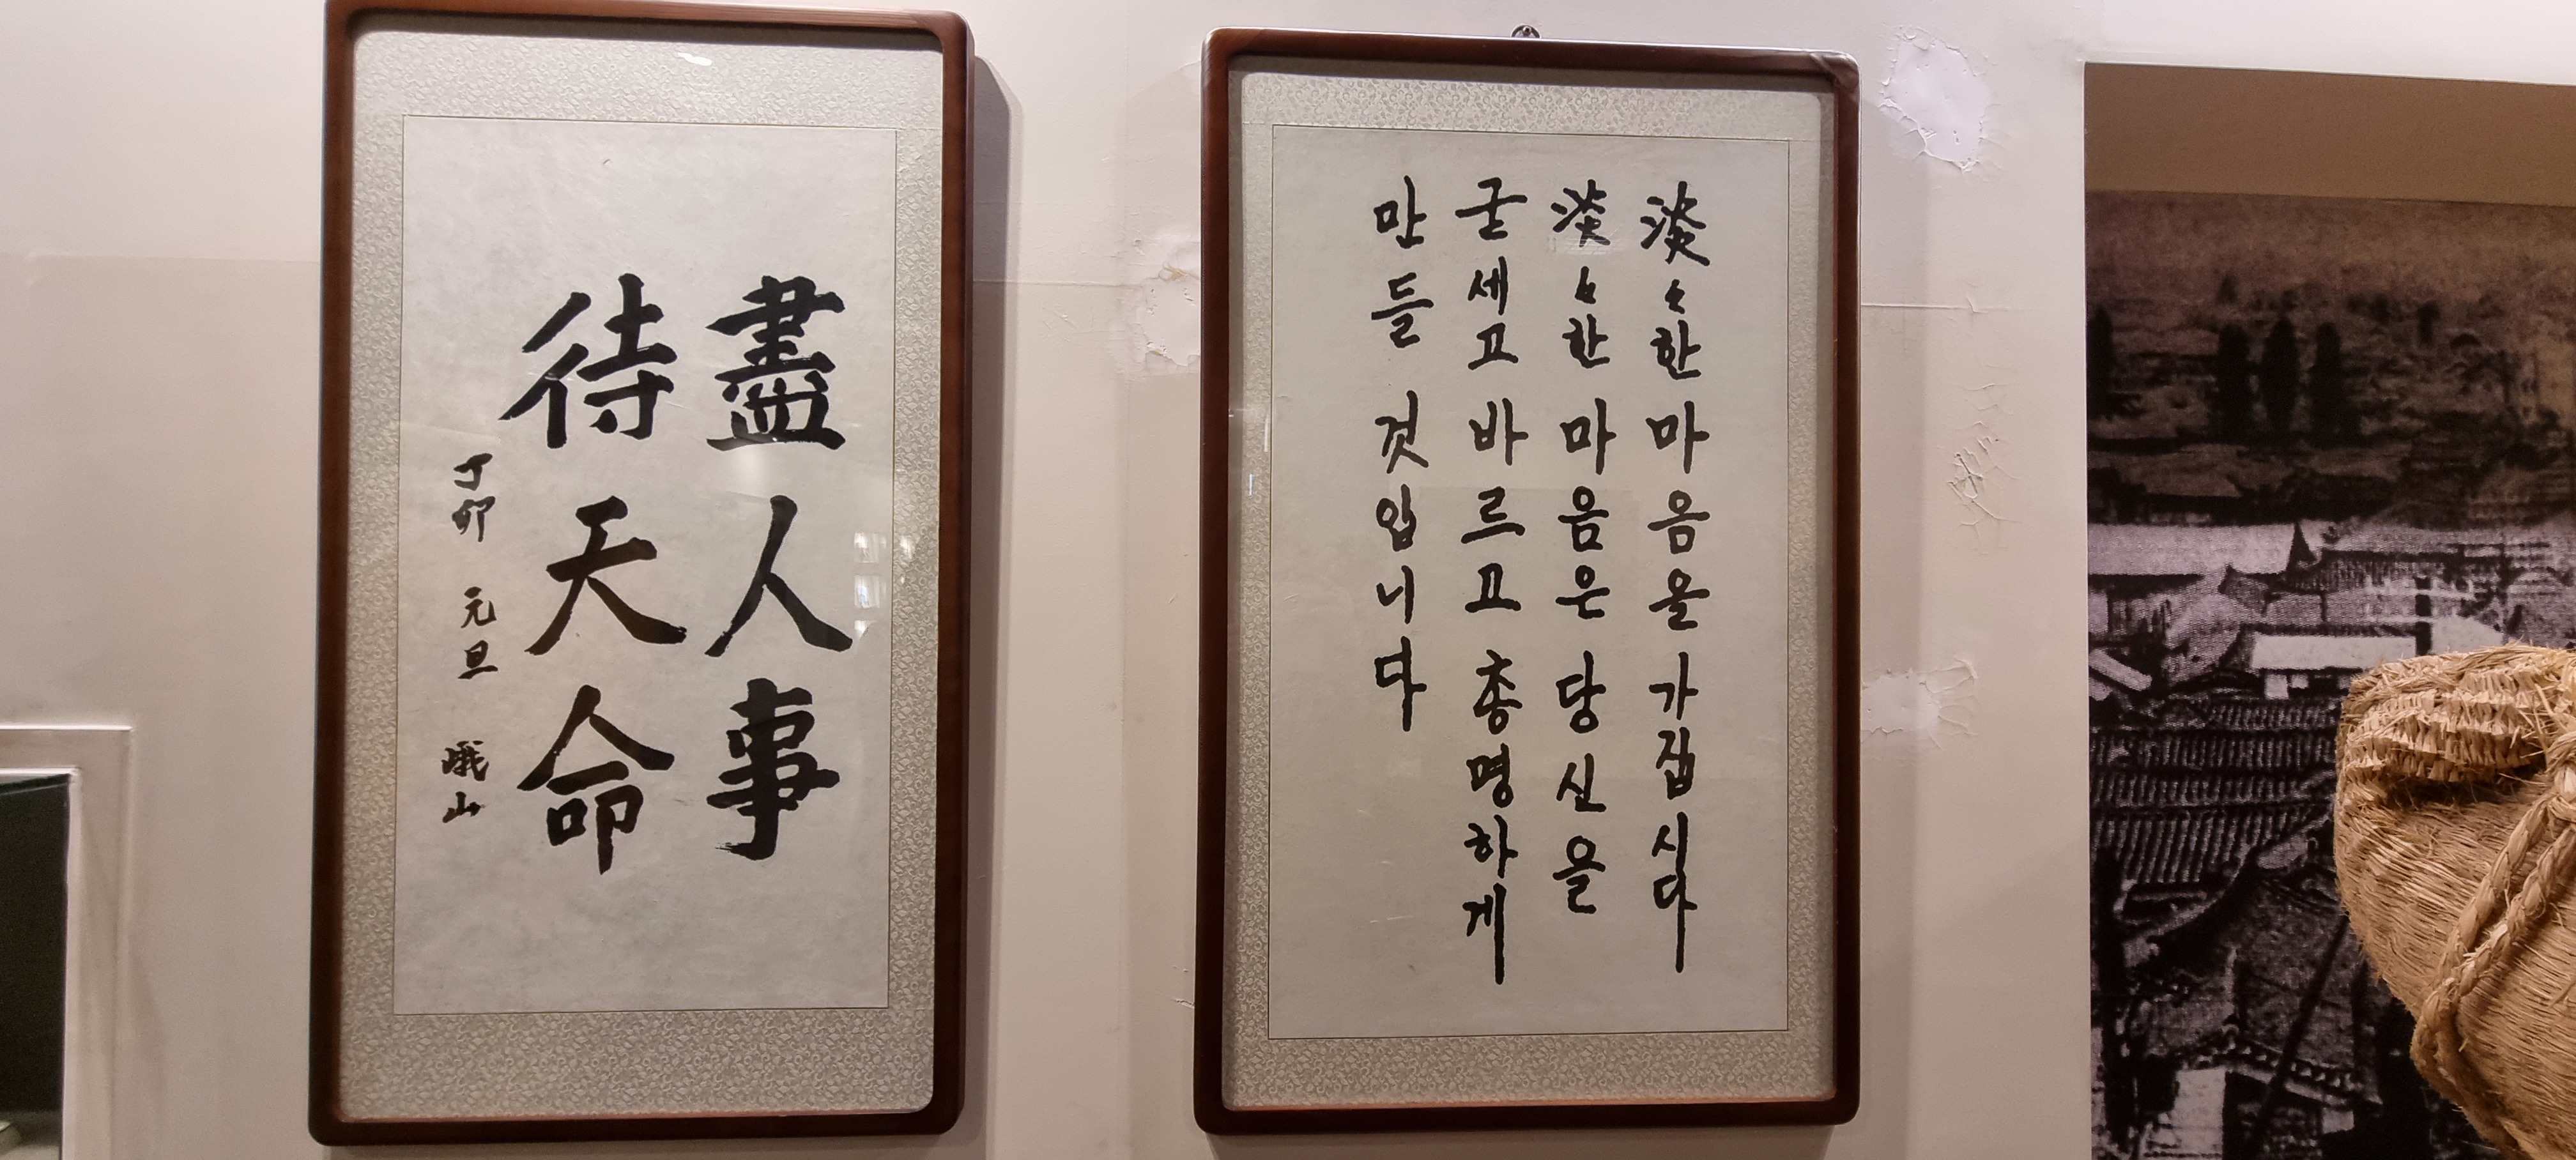 盡人事
待天命
丁卯 元旦 峨山
淡々한 마음을 가집시다
淡々한 마음은 당신을
굳세고 바르고 총명하게
만들 것입니다